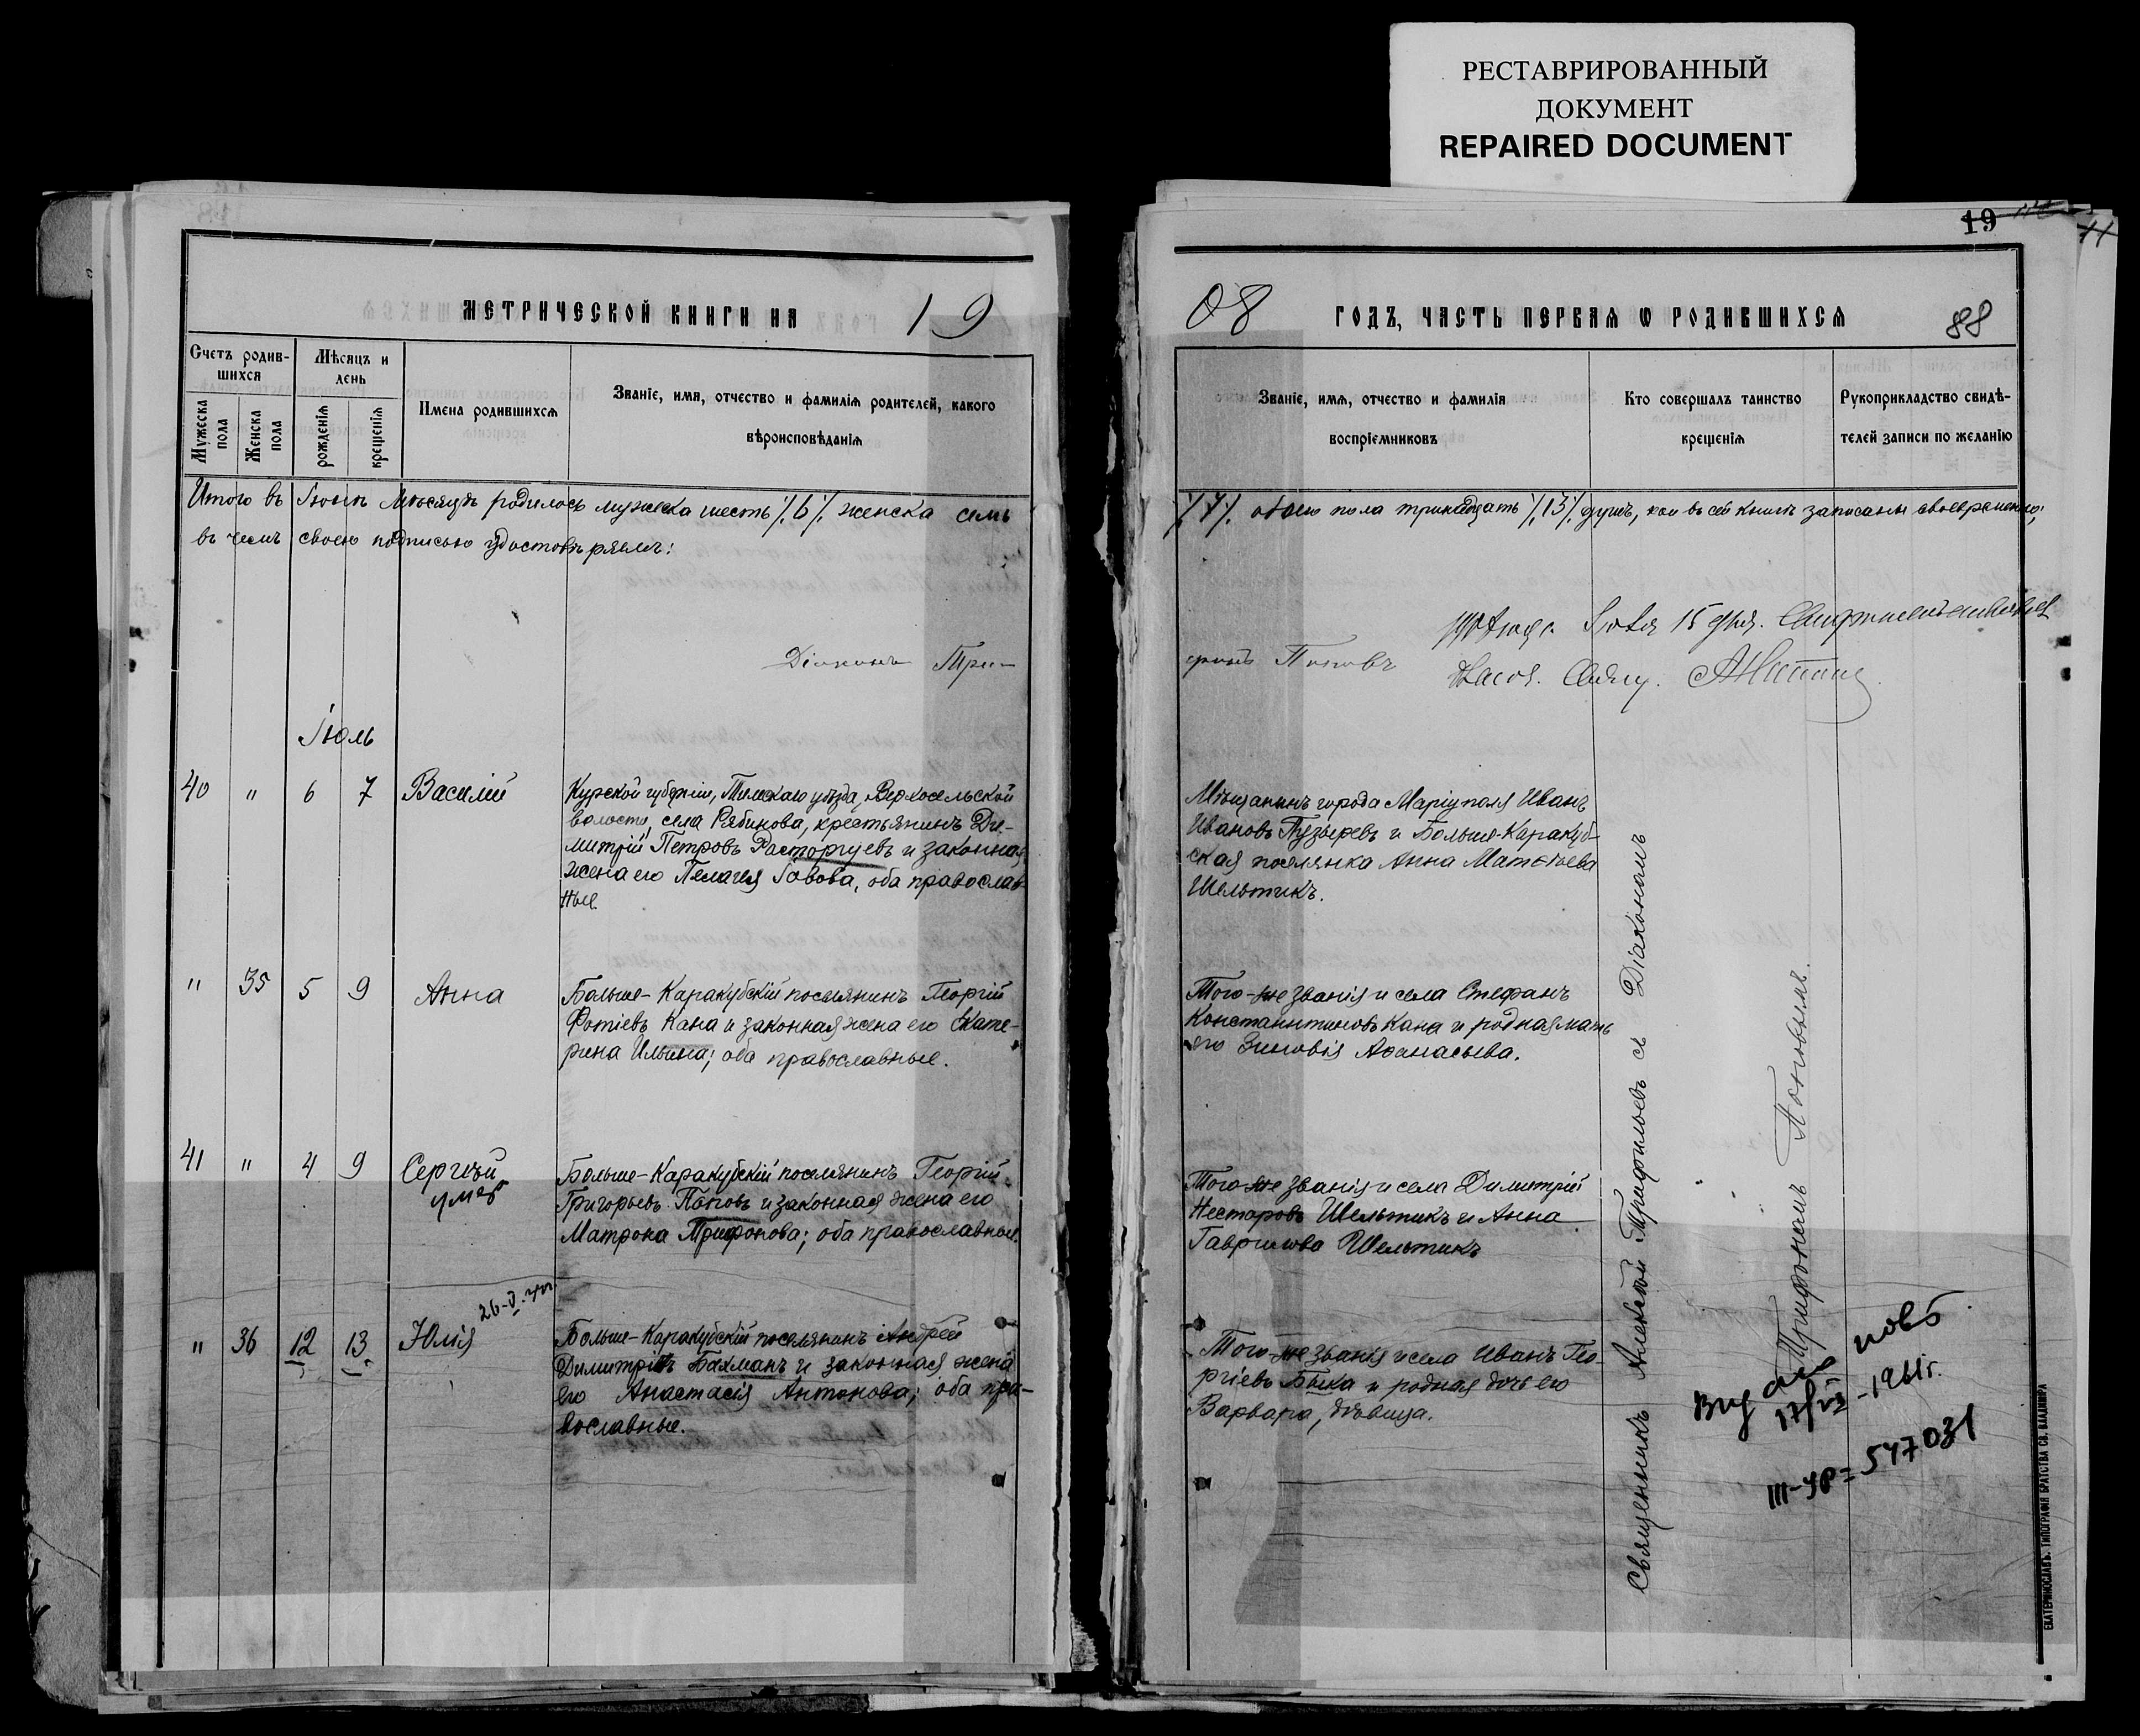 РЕСТАВРИРОВАННЫЙ
ДОКУМЕНТ
REPAIRED DOCUMENT
МЕТРИЧЕСКОЙ КНИГИ НА 19
Счетъ родив-
шихся
Мѣсяцъ и
день
Мужеска
пола
Женска
пола
рожденія
крещенія
Имена родившихся
Званіе, имя, отчество и фамилія родителей, какого
вѣроисповѣданія
Итого въ Іюнѣ мѣсяцѣ родилось мужеска шесть /.6/. женска семь
въ чемъ своею подписью удостовѣряемъ:
Діаконъ Три-
Іюль
40 " 6 7 Василій
Курской губерніи, Тимскаго уѣзда, Верхосельской
волости, села Рябинова, крестьянинъ Ди-
митрій Петровъ Расторгуевъ и законная
жена его Пелагея Іовова, оба православ-
ные.
" 35 5 9 Анна
Больше-Каракубскій поселянинъ Георгій
Фотіевъ Кана и законная жена его Екате-
рина Ильина; оба православные.
41 " 4 9 Сергѣй
умер
Больше-Каракубскій поселянинъ Георгій
Григорьевъ Поповъ и законная жена его
Матрона Трифонова; оба православные.
" 36 12 13 Юлія
26-V
Больше-Каракубскій поселянинъ Андрей
Димитріевъ Бахманъ и законная жена
его Анастасія Антонова; оба пра-
вославные.
19
08 ГОДЪ, ЧАСТЬ ПЕРВАЯ Ѡ РОДИВШИХСЯ
88
Званіе, имя, отчество и фамилія
воспріемниковъ
Кто совершалъ таинство
крещенія
Рукоприкладство свидѣ-
телей записи по желанію
/.7/. обоего пола тринадцать /.13/. душъ, кои въ сей книгѣ записаны своевременно;
фонъ Поповъ
15 дня.
Мѣщанинъ города Маріуполя Иванъ
Ивановъ Пузыревъ и Больше-Каракуб-
ская поселянка Анна Матѳѣева
Шельтикъ.
Того-же званія и села Стефанъ
Константиновъ Кана и родная мать
его Зиновія Аѳанасьева.
Того-же званія и села Димитрій
Несторовъ Шельтикъ и Анна
Гаврилова Шельтикъ
Того-же званія и села Иванъ Гео-
ргіевъ Быка и родная дочь его
Варвара, дѣвица.
Священникъ Алексѣй Трифильевъ съ Діакономъ
Трифономъ Поповымъ.
повт
-1961г.
III-УР = 547031
ЕКАТЕРИНОСЛАВЪ. ТИПОГРАФІЯ БРАТСТВА СВ. ВЛАДИМІРА